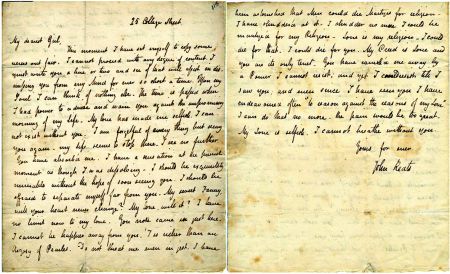 25 College Street
My dearest Girl,
This moment I have set myself to copy some
verses out fair. I cannot proceed with any degree of content. I
must write you a line or two and see if that will assist in dis
missing you from my Mind for ever so short a time. Upon my
Soul I can think of nothing else. The time is passed when
I had power to advise and warn you against the unpromising
morning of my life. My love has made me selfish. I can
not exist without you. I am forgetful of every thing but seeing
you again - my Life seems to stop there - I see no further.
You have absorb'd me. I have a sensation at the present
moment as though I was dissolving - I should be exquisitely
miserable without the hope of soon seeing you. I should be
afraid to separate myself far from you. My sweet Fanny,
will your heart never change? My love, will it? I have
no limit now to my love - You note came in just here.
I cannot be happier away from you. 'Tis richer than an
Argosy of Pearles. Do not threat me even in jest. I have
been astonished that Men could die Martyrs for religion -
I have shudder'd at it. I shudder no more. I could be
martyr'd for my Religion - Love is my religion - I could
die for that. I could die for you. My Creed is Love and
you are its only tenet. You have ravish'd me away by
a Power I cannot resist; and yet I could resist till I
saw you; and even since I have seen you I have
endeavoured often "to reason against the reasons of my Love."
I can do that no more - the pain would be too great.
My Love is selfish. I cannot breathe without you.
Yours for ever
John Keats